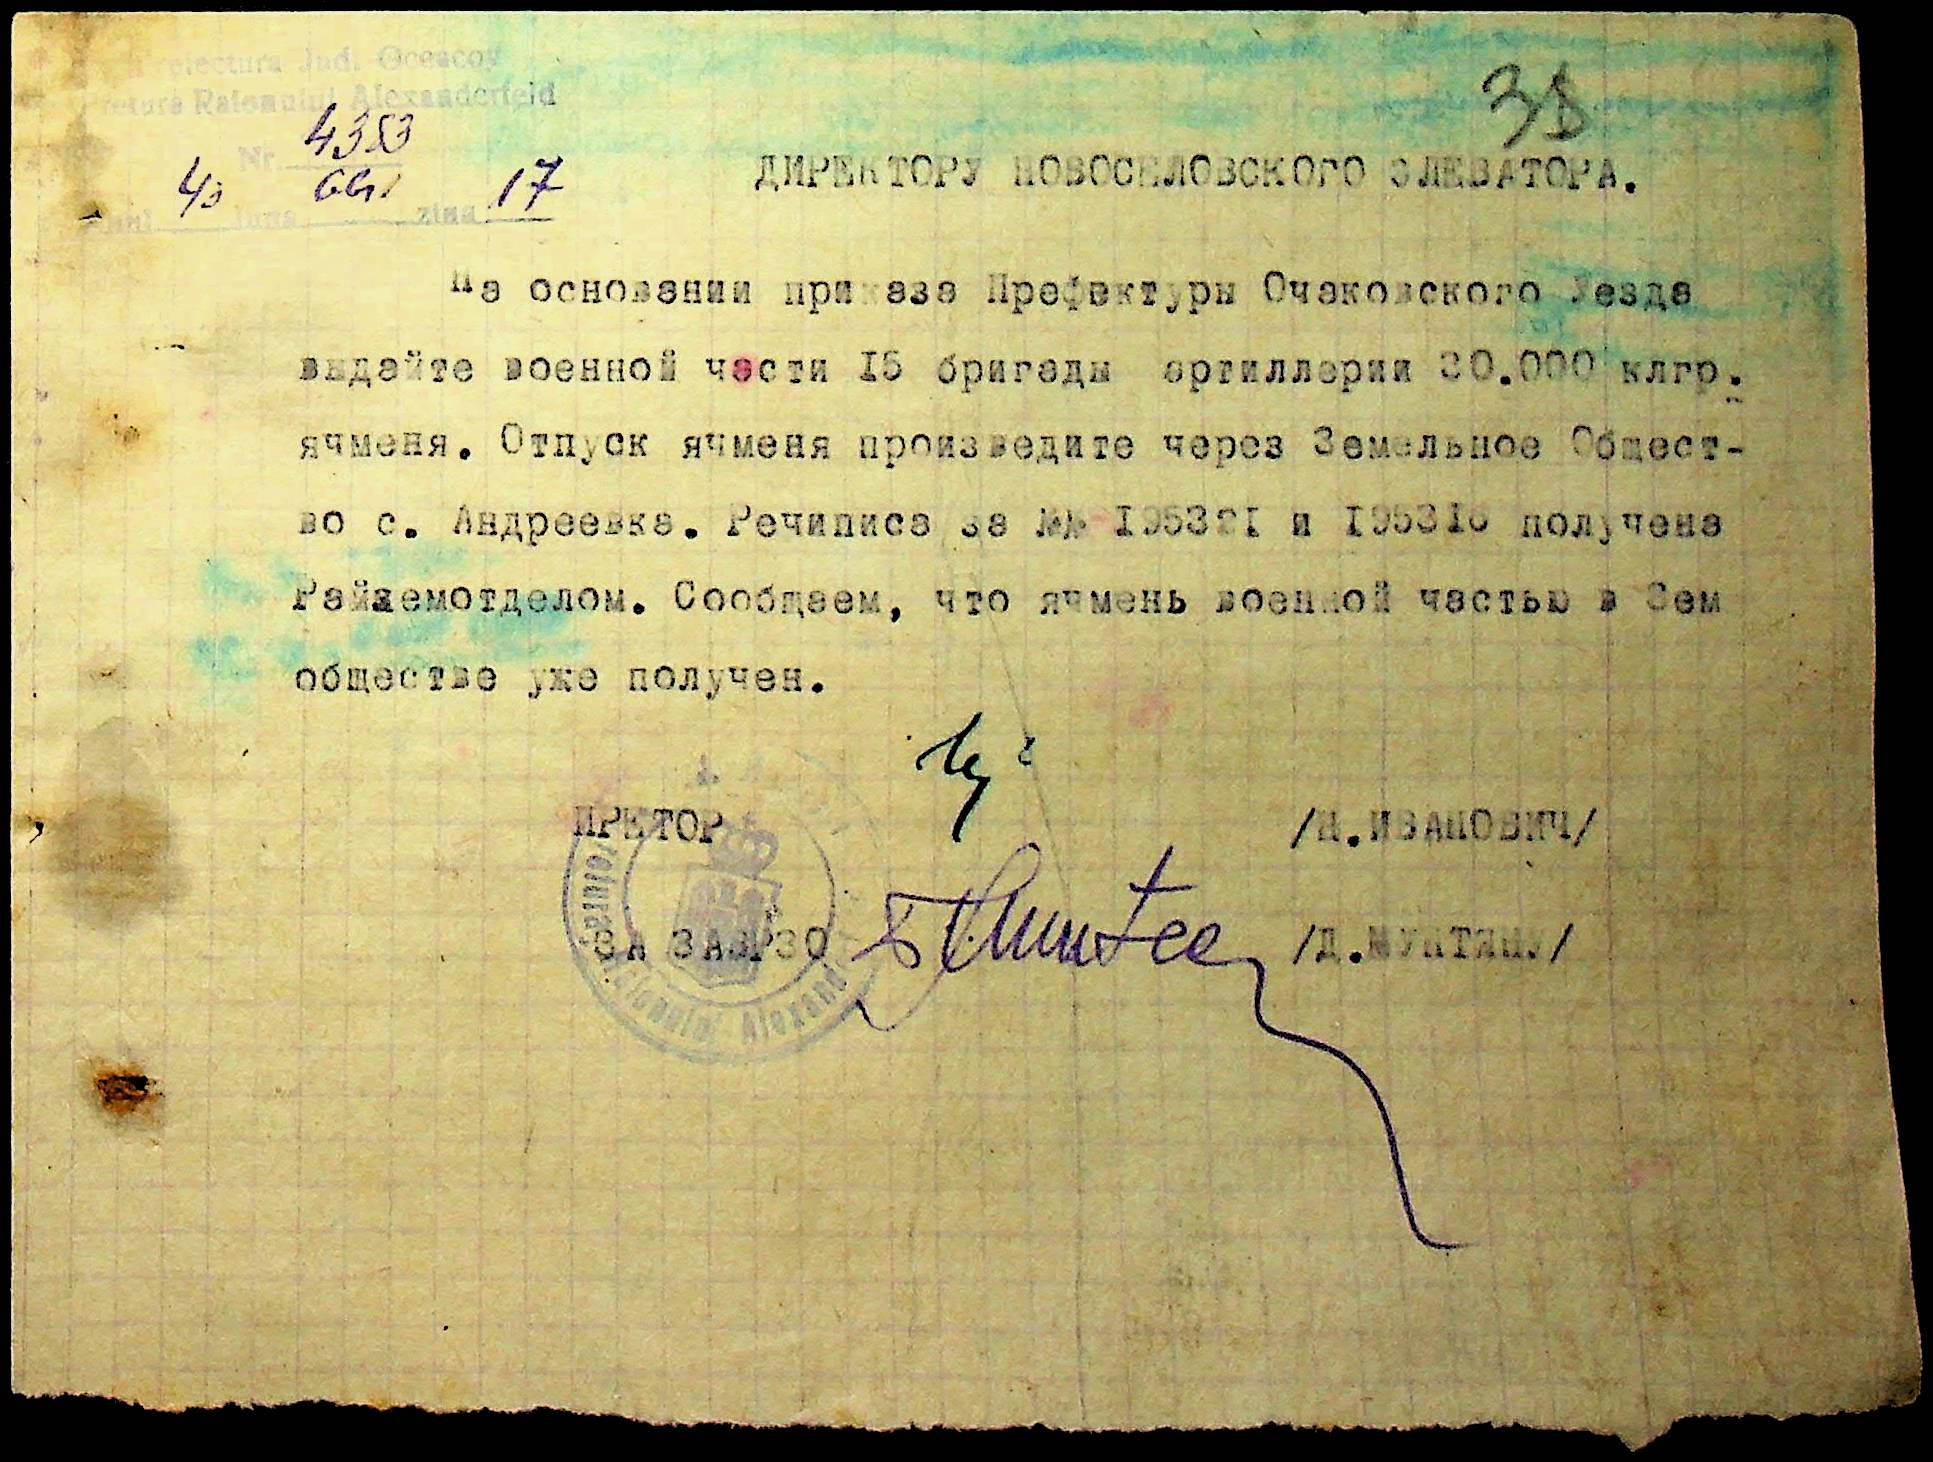 Prefectura Jud. Oceacov
Pretura Raionului Alexanderfeld
Nr. 4383
17
38
ДИРЕКТОРУ НОВОСЕЛОВСКОГО ЭЛЕВАТОРА.
На основании приказа Префектуры Очаковского Уезда
выдайте военной части 15 бригады артиллерии 30.000 клгр.
ячменя. Отпуск ячменя произведите через Земельное Общест-
во с. Андреевка. Речиписа за №№ 195321 и 195316 получена
Райземотделом. Сообщаем, что ячмень военной частью в Зем
обществе уже получен.
ПРЕТОР /Н.ИВАНОВИЧ/
ЗА ЗАВРЗО /Д.МУНТЯНУ/
Raionului Alexand